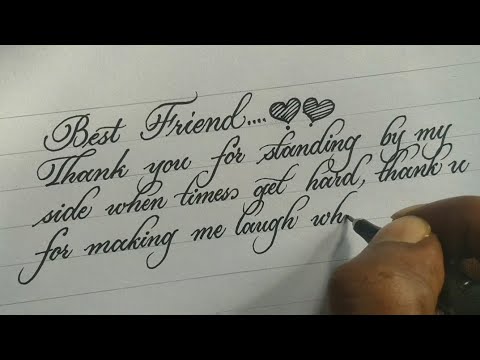 Best Friend....
Thank you for standing by my
side when times get hard, thank u
for making me laugh wh